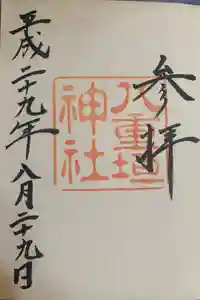 参拝
八重垣神社
平成二十九年八月二十九日